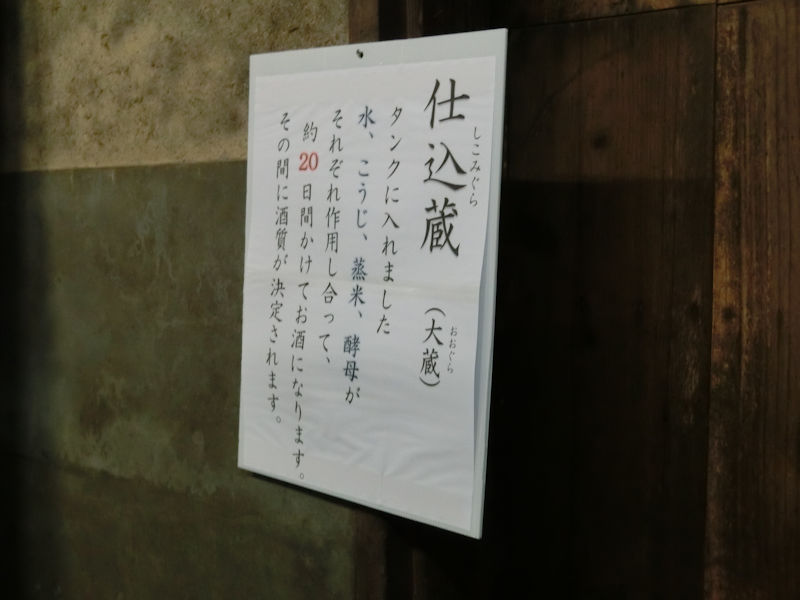 仕込蔵 (大蔵)
しこみぐら
おおぐら
タンクに入れました
水、こうじ、蒸米、酵母が
それぞれ作用し合って、
約20日間かけてお酒になります。
その間に酒質が決定されます。